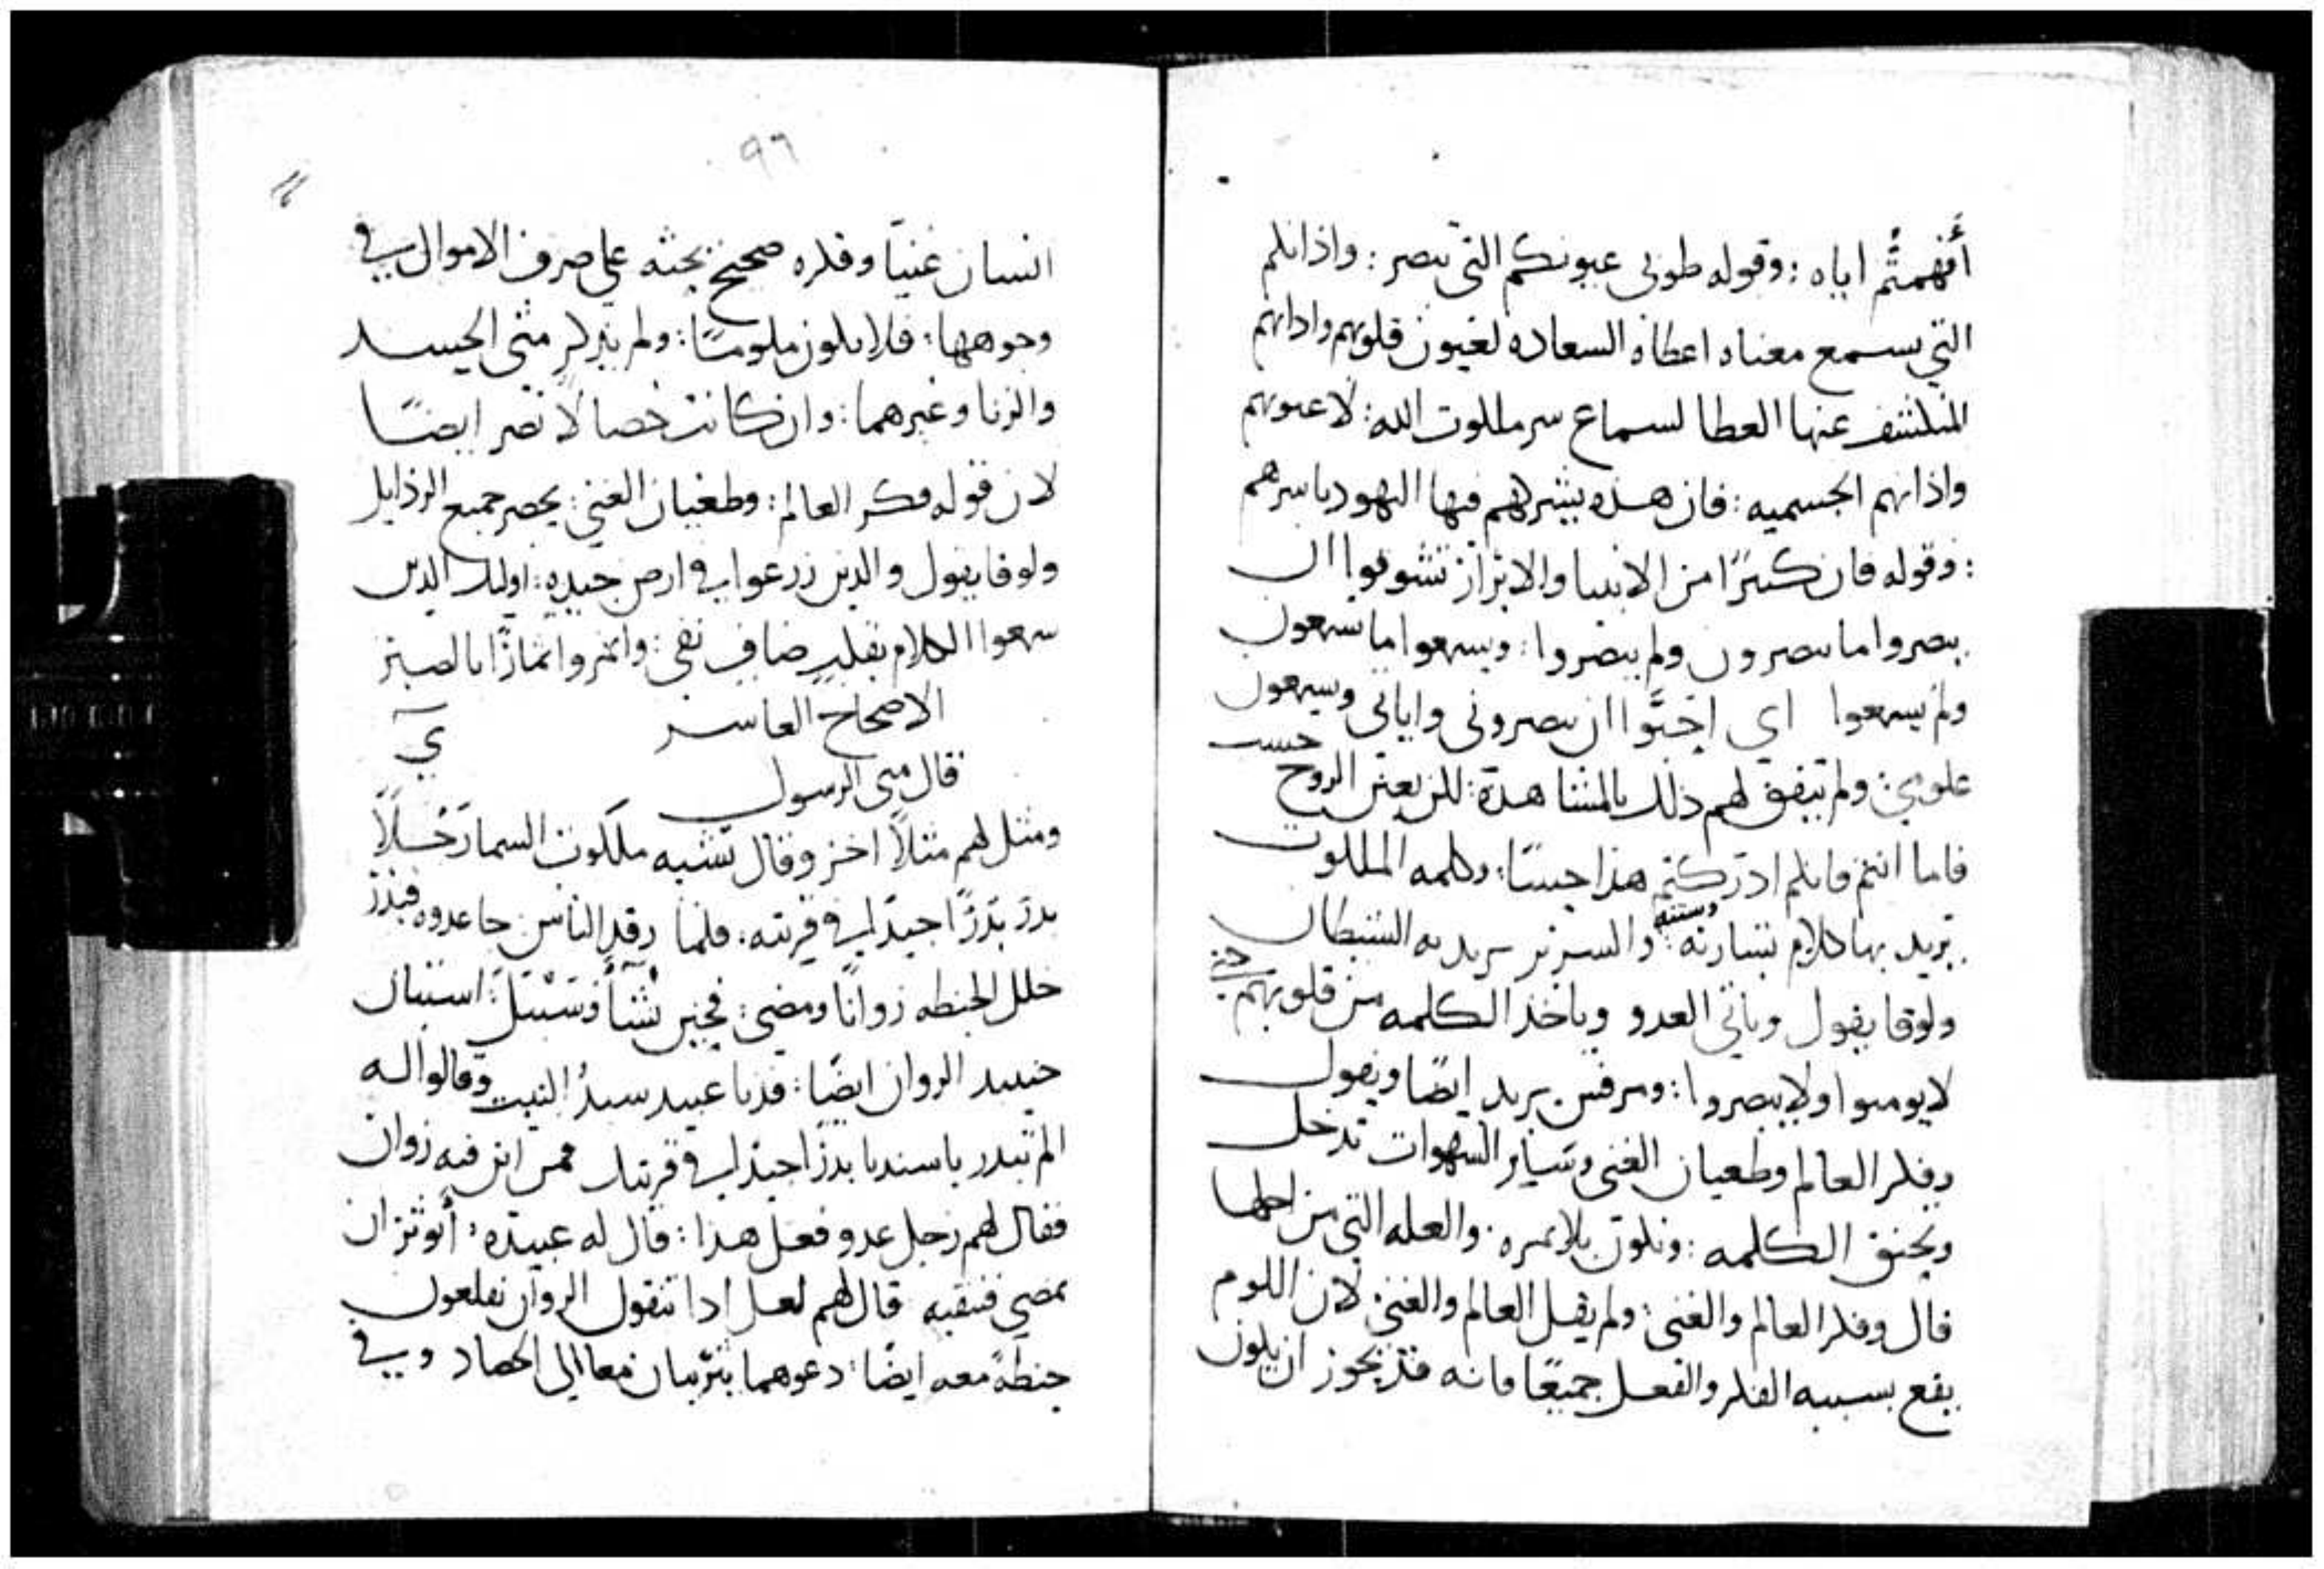 أفهمتُم اياه : وقوله طوبى عيونكم التي تبصر : واذانكم
التي يسمع معناه اعطاه السعاده لعيون قلوبهم واذانهم
المنكشف عنها الغطا لسماع سر ملكوت الله : لا عيونهم
واذانهم الجسميه : فان هذه يشركهم فيها اليهود باسرهم
: وقوله فان كثيرًا من الانبيا والابرار تشوقوا ان
يبصروا ما تبصرون ولم يبصروا : ويسمعوا ما تسمعون
ولم يسمعوا اي احبّوا ان يبصروني واياتي ويسمعون
علومي : ولم يتفق لهم ذلك بالمشاهدة : لكن بعين الروح
حسب
فاما انتم فانكم ادركتم هذا حسًا : وكلمه الملكوت
يريد بها كلام بشارته وسننه : والشرير يريد به الشيطان
ولوقا يقول وياتي العدو وياخذ الكلمه من قلوبهم :
لا يومنوا ولا يبصروا : ومرقس يريد ايضًا ويقول
وفكر العالم وطغيان الغني وساير الشهوات تدخل
ويخنق الكلمه : وتكون بلا ثمره : والعله التي من اجلها
قال وفكر العالم والغنى : ولم يقل العالم والغنى : لان اللوم
يقع بسببه الفكر والفعل جميعًا فانه قد يجوز ان يكون
٩٦
انسان غنيًا وفكره صحيح يحثه على صرف الاموال في
وجوهها : فلا يكون ملومًا : ولم يذكر متى الحسد
والزنا وغيرهما : وان كانت خصالًا تضر ايضًا
لان قوله فكر العالم : وطغيان الغنى : يحصر جميع الرذايل
ولوقا يقول والذين زرعوا في ارض جيده : اوليك الذين
سمعوا الكلام بقلبٍ صافٍ نقي : واثمروا اثمارًا بالصبر
الاصحاح العاشر
ي
قال متى الرسول
ومثل لهم مثلًا اخر وقال تشبه ملكوت السما رَجُلًا
بذر بذرًا جيدًا في قريته : فلما رقد الناس جا عدوه فبذر
خلل الحنطه زوانًا ومضى : فحين نشأ وسَبْبَلَ : استبان
حينيد الزوان ايضًا : فدنا عبيد سيدُ البيت وقالوا له
الم تبذر يا سيدنا بذرًا جيدًا في قريتك فمن اين فيه زوان
فقال لهم رجل عدو فعل هذا : قال له عبيده : أتوثر ان
نمضي فننقيه قال لهم لعل اذا تنقون الزوان تقلعون
حنطةً معه ايضًا : دعوهما يتربيان معا الى الحصاد وفي